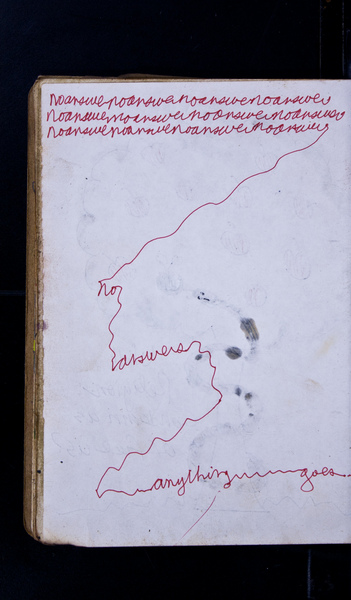 noanswernoanswernoanswernoanswer
noanswernoanswernoanswernoanswer
noanswernoanswernoanswernoanswer
no
answers
anything goes